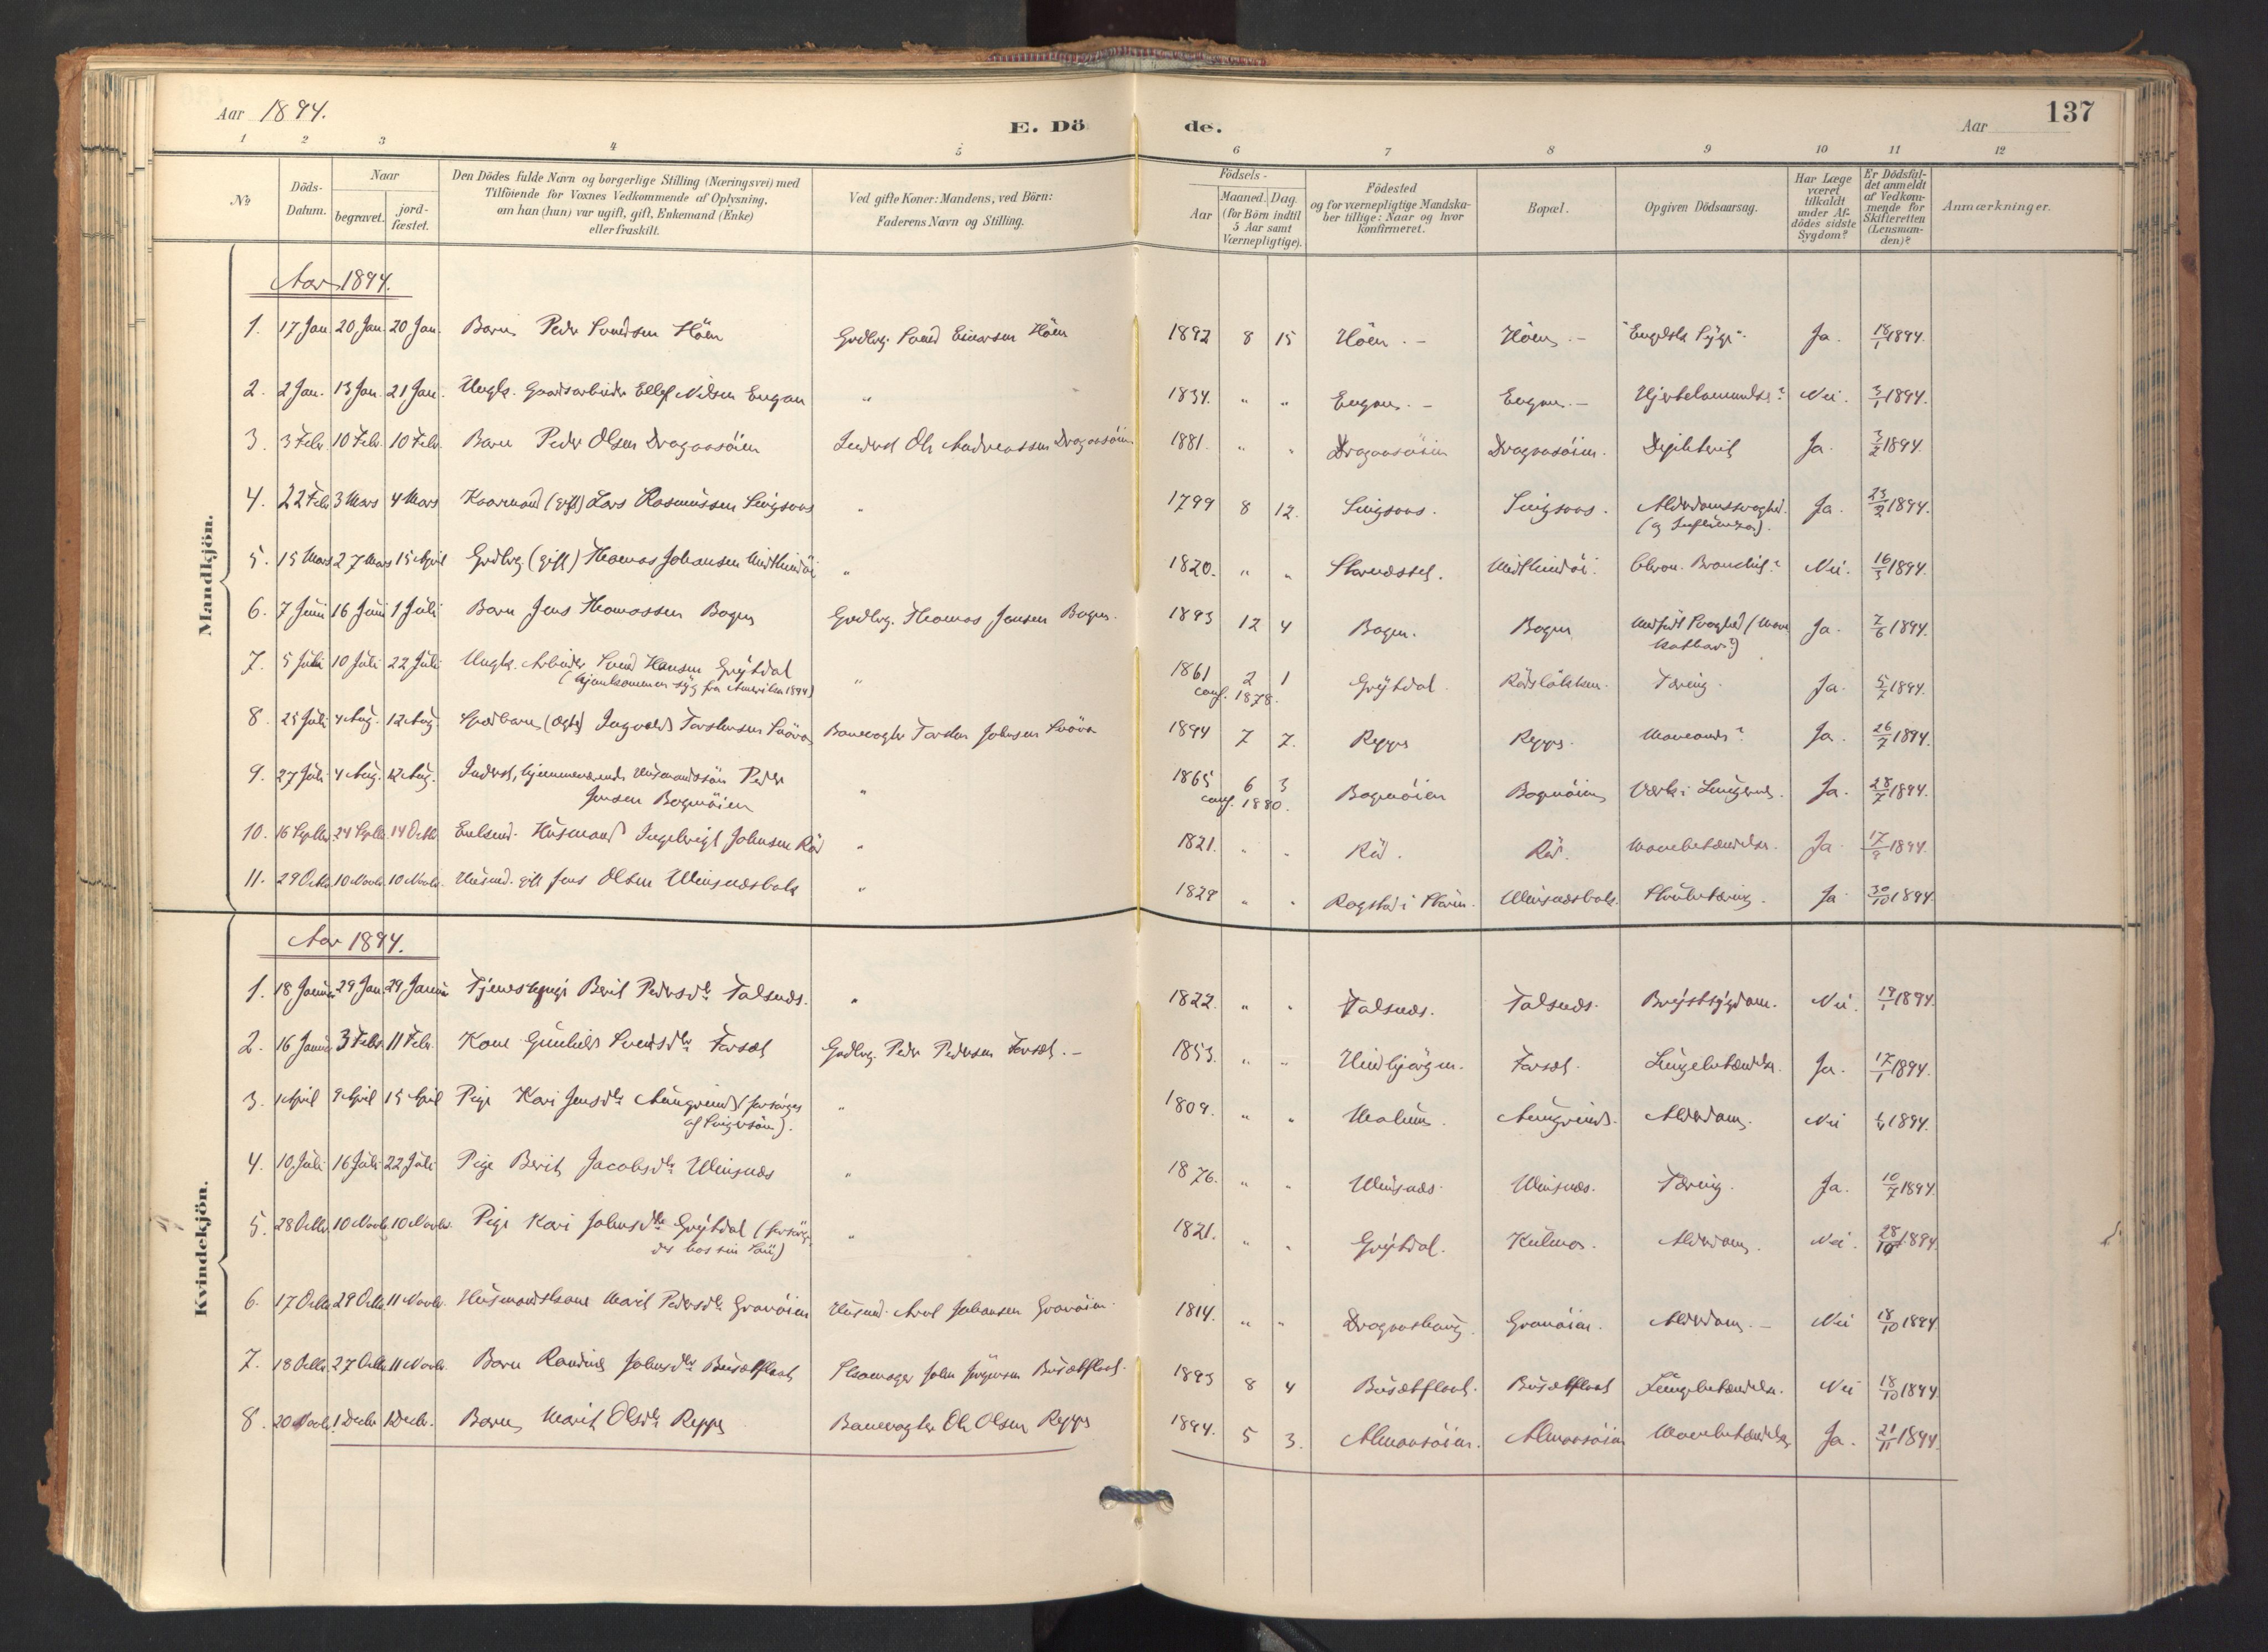 Aar 1894.
E. Dö de.
Aar
137
1 2 3 4 5 6 7 8 9 10 11 12
№
Döds-Datum.
Naar
begravet.
jord-fæstet.
Den Dödes fulde Navn og borgerlige Stilling (Næringsvei) med
Tilföiende for Voxnes Vedkommende af Oplysning,
om han (hun) var ugift, gift, Enkemand (Enke)
eller fraskilt.
Ved gifte Koner: Mandens, ved Börn:
Faderens Navn og Stilling.
Födsels-
Aar
Maaned. Dag.
(for Börn indtil
5 Aar samt
Værnepligtige).
Födested
og for værnepligtige Mandska-
ber tillige: Naar og hvor
konfirmeret.
Bopæl.
Opgiven Dödsaarsag.
Har Læge
været
tilkaldt
under Af-
dödes sidste
Sygdom?
Er Dödsfal-
det anmeldt
af Vedkom-
mende for
Skifteretten
(Lensman-
den)?
Anmærkninger.
Mandkjön.
Aar 1894.
1. 17 Jan 20 Jan. 20 Jan. Barn Peder Svendsen Höen Grdbrg. Svend Einarsen Höen 1892 8 15 Höen. – Höen. – "Engelsk Syge". Ja. 18/1 1894.
2. 2 Jan. 13 Jan. 21 Jan. Ungk. Gaardsarbeider Ellef Nilsen Engan " 1834. " " Engan. – Engan. – Hjertelammelse? Nei. 3/1 1894.
3. 3 Febr. 10 Febr. 10 Febr. Barn Peder Olsen Dragaasöien Inderst Ole Andreassen Dragaasöien 1881. " " Dragaasöien Dragaasöien. Ja. 3/2 1894.
4. 22 Febr 3 Mars 4 Mars Kaarmand (gift) Lars Rasmussen Singsaas " 1799 8 12. Singsaas. Singsaas. Alderdomssvaghed.
(og Influenza). Ja. 23/2 1894.
5. 15 Mars 27 Mars 15 April Grdbrg (gift) Thomas Johansen " 1820. " " Chron. Bronchit? Nei. 16/3 1894.
6. 7 Juni 16 Juni 1 Juli Barn Jens Thomassen Bogen Grdbrg. Thomas Jensen Bogen. 1893 12 4 Bogen. Bogen Medfödt Svaghed (Mave
katharr?) Ja. 7/6 1894.
7. 5 Juli 10 Juli 22 Juli Ungk. Arbeider Svend Hansen Grytdal
(hjemkommen syg fra Amerika 1894) " 1861 2 1
conf. 1878. Grytdal. Tæring. Ja. 5/7 1894.
8. 25 Juli 4 Aug. 12 Aug. Spædbarn (ægte) Ingvald Torstensen Banevogter Torsten Johnsen 1894 7 7. Repps Repps. Maveonde? Ja. 26/7 1894.
9. 27 Juli 4 Aug. 12 Aug. Inderst, hjemmeværende Husmandssön Peder
Jensen Bogenöien " 1865 6 3
conf. 1880. Bogenöien Bogenöien Værk i Lungerne. Ja. 28/7 1894.
10. 16 Septbr. 24 Septbr. 14 Octbr Enkemd. Husmand Ingebrigt Johnsen Röd " 1821. " " Röd. Röd. Mavebetændelse. Ja. 17/9 1894.
11. 29 Octbr 10 Novbr. 10 Novbr. Husmd. gift Jens Olsen Winsnesbakk " 1829 " " Rogstad i Winsnesbakk. Strubetæring. Ja. 30/10 1894.
Kvindekjön.
Aar 1894.
1. 18 Januar 29 Jan. 29 Januar Tjenestepige Berit Pedersdtr Talsnes. " 1822. " " Talsnes. Talsnes. Brystsygdom. Nei. 19/1 1894.
2. 16 Januar 3 Febr. 11 Febr. Kone Gunhild Svendsdtr Forsæt Grdbrg. Peder Pedersen Forsæt. – 1853. " " Forsæt. Lungebetændelse. Ja. 17/1 1894.
3. 1 April 9 April 15 April Pige Kari Jensdtr Aungrind (forsörges
af Svigersön). " 1809. " " Aungrind. Alderdom. Nei 1/4 1894.
4. 10 Juli 16 Juli 22 Juli Pige Berit Jacobsdtr Winsnes " 1876. " " Winsnes. Winsnes. Tæring. Ja. 10/7 1894.
5. 28 Octbr. 10 Novbr 10 Novbr. Pige Kari Johnsdtr Grytdal (forsörge-
des hos sin Sön) " 1821. " " Grytdal. Kulmoe. Alderdom. Nei. 28/10 1894.
6. 17 Octbr 29 Octbr. 11 Novbr. Husmandskone Marit Pedersdtr Granöien Husmd. Arnt Johansen Granöien. 1814. " " Dragaashaug. Granöien. Alderdom. – Nei 18/10 1894
7. 18 Octbr. 27 Octbr. 11 Novbr. Barn Randine Johnsdtr Busætfloat Skomager John Jörgensen Busætfloat. 1893 8 4 Busætfloat. Busætfloat Lungebetændelse. Nei 18/10 1894
8. 20 Novbr. 1 Decbr 1 Decbr. Barn Marit Olsdtr Repps Banevogter Ole Olsen Repps 1894. 5 3. Almaasöien. Almaasöien Mavebetændelse Ja. 21/11 1894.